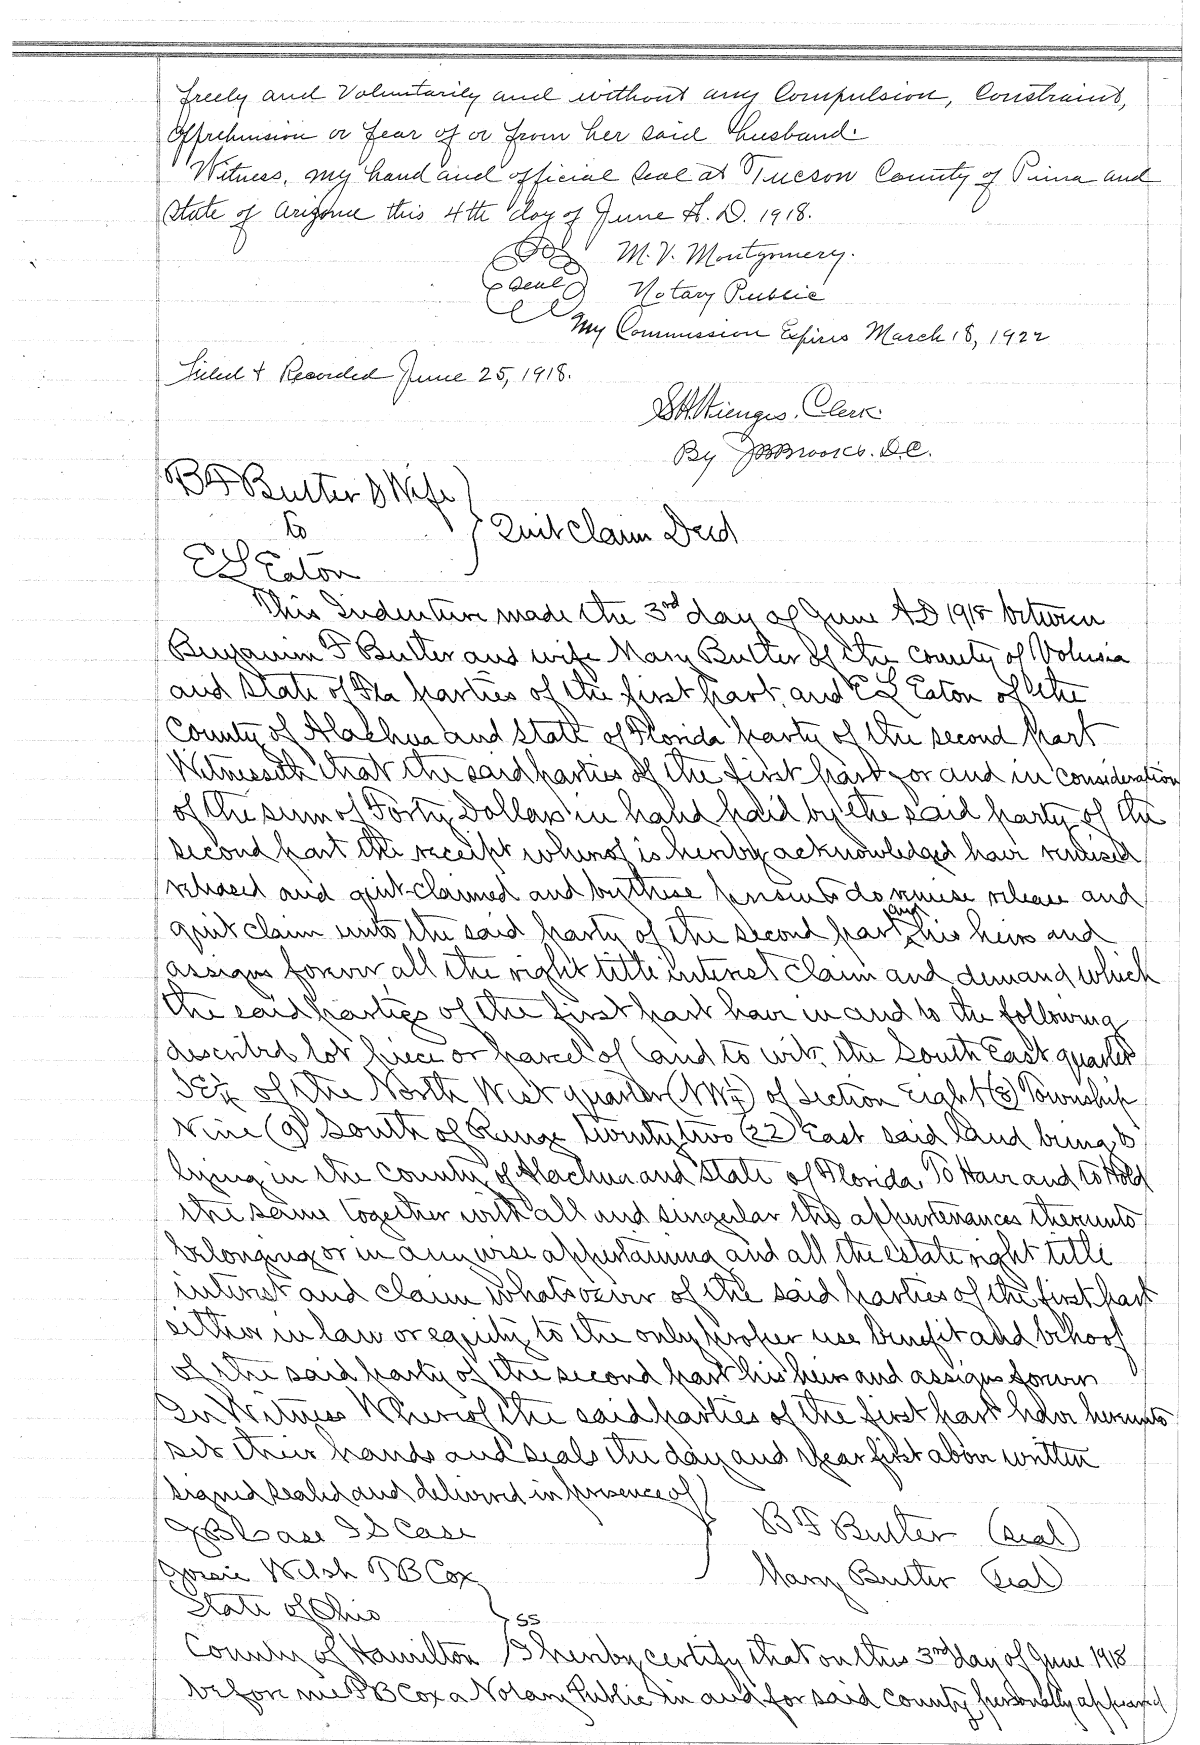 freely and Voluntarily and without any Compulsion, Constraint,
Apprehension or fear of or from her said husband.
Witness, my hand and official seal at Tucson County of Pima and
State of Arizona this 4th day of June A.D. 1918.
M. V. Montgomery.
(Seal) Notary Public
My Commission Expires March 18, 1922
Filed & Recorded June 25, 1918.
S.H. Wienges. Clerk.
By D.C.
B F Butler & Wife
to
Quit Claim Deed
E L Eaton
This Indenture made the 3rd day of June AD 1918 between
Benjamin F Butler and wife Mary Butler of the county of Volusia
and State of Fla parties of the first part, and E L Eaton of the
County of Alachua and State of Florida party of the second part
Witnesseth that the said parties of the first part for and in consideration
of the sum of Forty Dollars in hand paid by the said party of the
second part the receipt whereof is hereby acknowledged have remised
released and quit-claimed and by these presents do remise release and
quit claim unto the said party of the second part and his heirs and
assigns forever all the right title interest claim and demand which
the said parties of the first part have in and to the following
described lot piece or parcel of land to wit, the South East quarter
SE¼ of the North West quarter (NW¼) of Section Eight (8) Township
Nine (9) South of Range Twenty two (22) East said land being &
lying in the County of Alachua and State of Florida. To Have and to Hold
the same together with all and singular the appurtenances thereunto
belonging or in anywise appertaining and all the estate right title
interest and claim whatsoever of the said parties of the first part
either in law or equity to the only proper use benefit and behoof
of the said party of the second part his heirs and assigns forever
In Witness Whereof the said parties of the first part have hereunto
set their hands and seals the day and year first above written
signed sealed and delivered in presence of
J B Case I S Case B F Butler (Seal)
Josie Welsh T B Cox Mary Butler (Seal)
State of Ohio
SS
County of Hamilton I hereby certify that on this 3rd day of June 1918
before me T B Cox a Notary Public in and for said county personally appeared